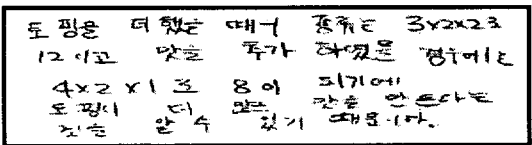 토핑을 더 했을 때의 종류는 3x2x2로
12이고 맛을 추가 하였을 경우에는
4x2x1로 8이 되기에
토핑이 더 많은 맛을 만든다는
것을 알 수 있기 때문이다.